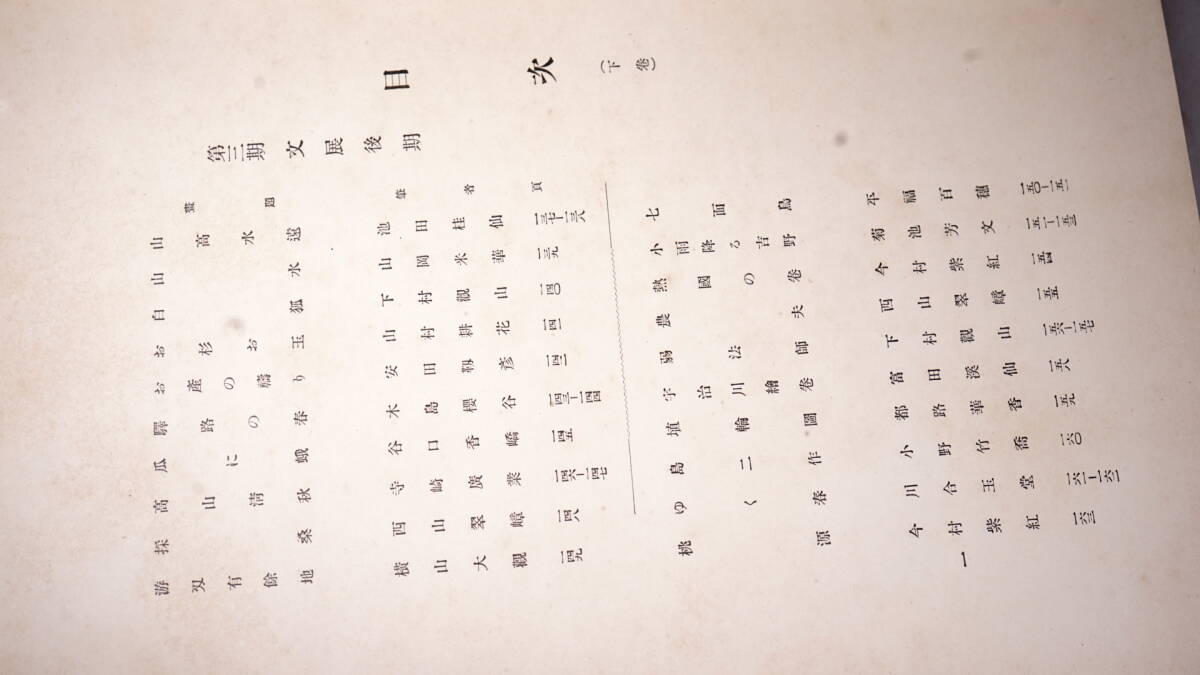 目次(下卷)
第三期 文展後期
畫題 筆者 頁
山高水遠 池田桂仙 一三七-一三八
山水 山岡米華 一三九
白狐 下村觀山 一四〇
お杉お玉 山村耕花 一四一
お產の禱り 安田靫彥 一四二
驛路の春 木島櫻谷 一四三-一四四
瓜に蛾 谷口香嶠 一四五
高山淸秋 寺崎廣業 一四六-一四七
採桑 西山翠嶂 一四八
游刄有餘地 橫山大觀 一四九
七面鳥 平福百穗 一五〇-一五一
小雨降る吉野 菊池芳文 一五二-一五三
熱國の卷 今村紫紅 一五四
農夫 西山翠嶂 一五五
弱法師 下村觀山 一五六-一五七
宇治川繪卷 富田溪仙 一五八
埴輪圖 都路華香 一五九
島二作 小野竹喬 一六〇
ゆく春 川合玉堂 一六一-一六二
桃源 今村紫紅 一六三
一